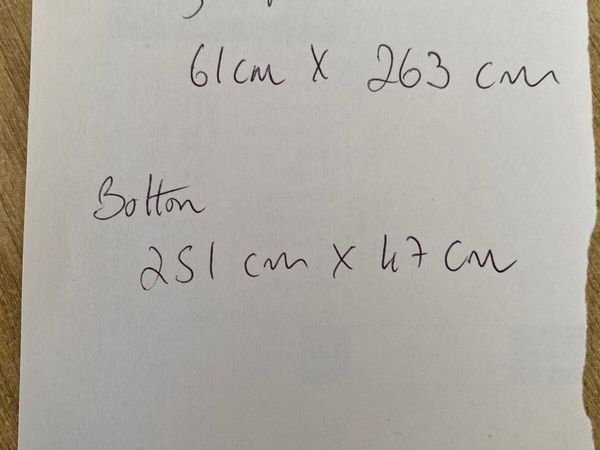 61cm X 263 cm
Botton
251 cm X 47 cm